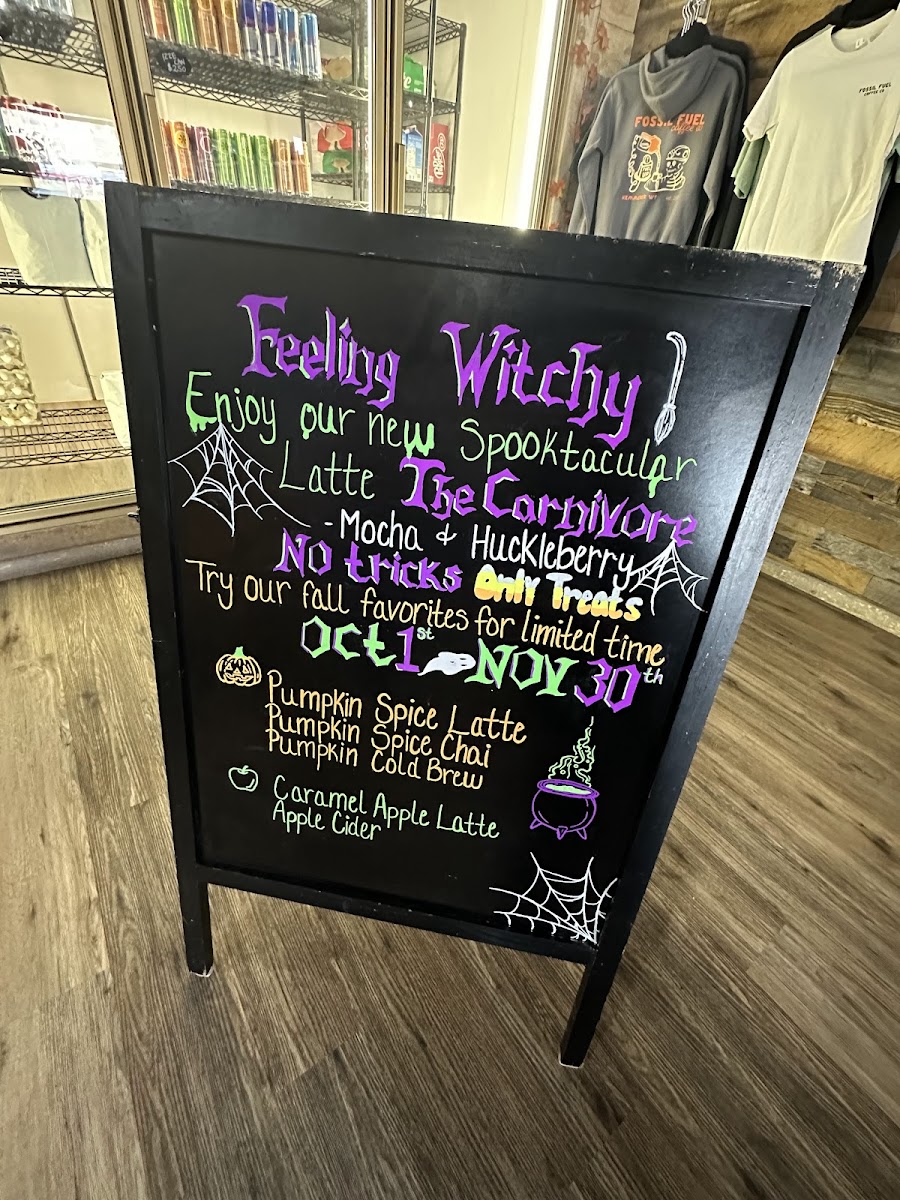 FOSSIL FUEL
COFFEE CO
FOSSIL FUEL
COFFEE CO
Feeling Witchy
Enjoy our new Spooktacular
Latte The Carnivore
- Mocha & Huckleberry
No tricks Only Treats
Try our fall favorites for limited time
Oct 1st Nov 30th
Pumpkin Spice Latte
Pumpkin Spice Chai
Pumpkin Cold Brew
Caramel Apple Latte
Apple Cider